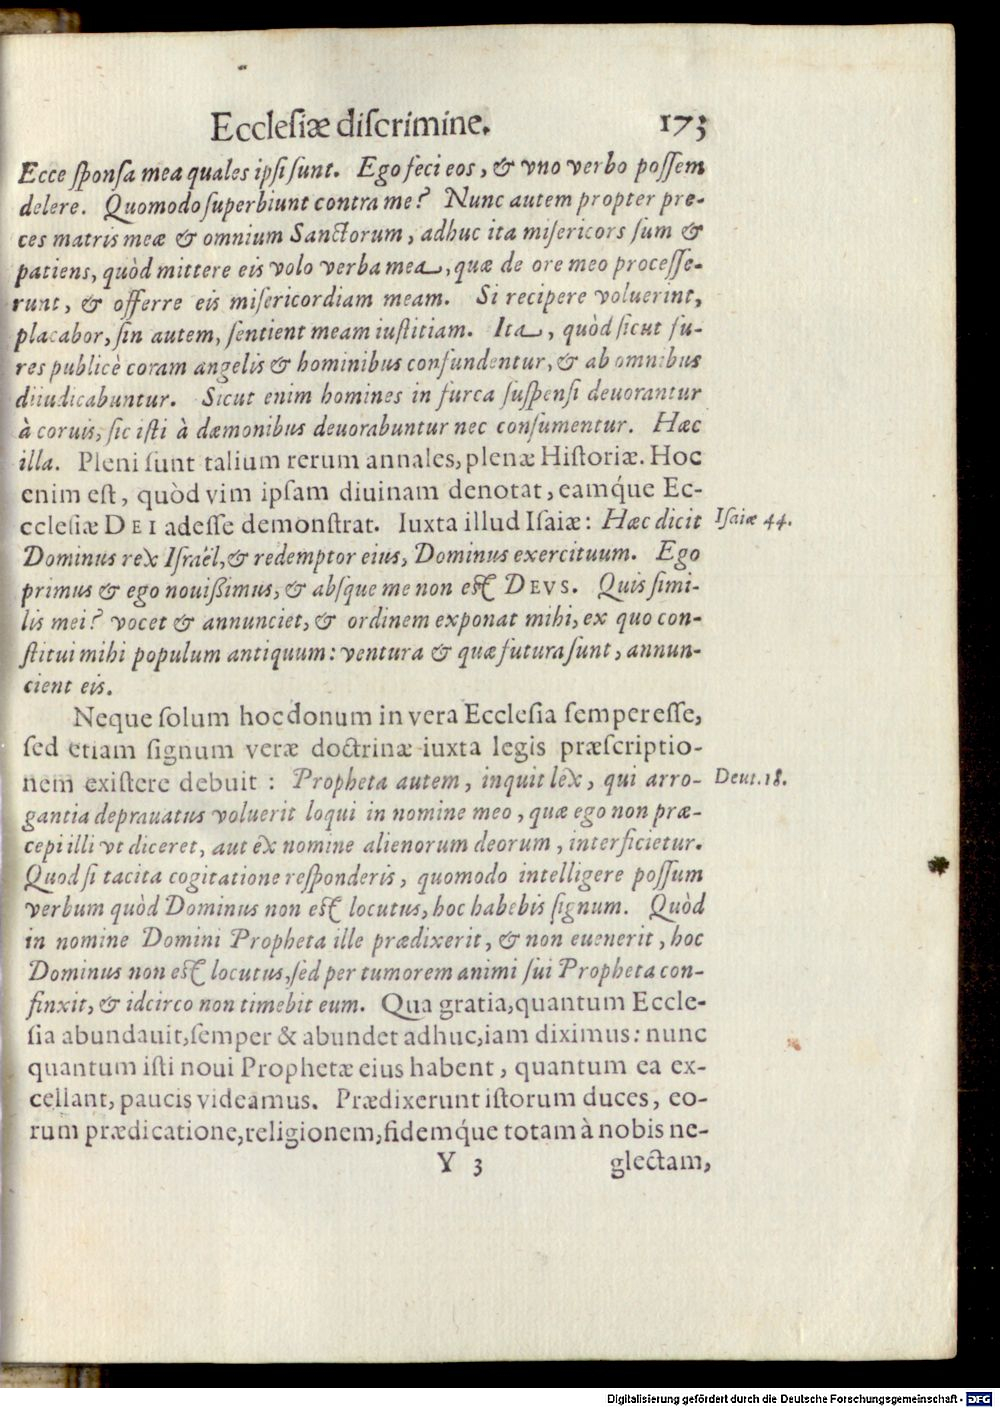 Ecclesiæ discrimine. 173
Ecce sponsa mea quales ipsi sunt. Ego feci eos, & vno verbo possem
delere. Quomodo superbiunt contra me? Nunc autem propter pre-
ces matris meæ & omnium Sanctorum, adhuc ita misericors sum &
patiens, quòd mittere eis volo verba mea, quæ de ore meo processe-
runt, & offerre eis misericordiam meam. Si recipere voluerint,
placabor, sin autem, sentient meam iustitiam. Ita, quòd sicut fu-
res publicè coram angelis & hominibus confundentur, & ab omnibus
diiudicabuntur. Sicut enim homines in furca suspensi deuorantur
à coruis, sic isti à dæmonibus deuorabuntur nec consumentur. Hæc
illa. Pleni sunt talium rerum annales, plenæ Historiæ. Hoc
enim est, quòd vim ipsam diuinam denotat, eamq́ue Ec-
cclesiæ DEI adesse demonstrat. Iuxta illud Isaiæ: Hæc dicit
Isaiæ 44.
Dominus rex Israël, & redemptor eius, Dominus exercituum. Ego
primus & ego nouißimus, & absque me non est DEVS. Quis simi-
lis mei? vocet & annunciet, & ordinem exponat mihi, ex quo con-
stitui mihi populum antiquum: ventura & quæ futura sunt, annun-
cient eis.
Neque solum hoc donum in vera Ecclesia semper esse,
sed etiam signum veræ doctrinæ iuxta legis præscriptio-
nem existere debuit: Propheta autem, inquit lex, qui arro-
Deut. 18.
gantia deprauatus voluerit loqui in nomine meo, quæ ego non præ-
cepi illi vt diceret, aut ex nomine alienorum deorum, interficietur.
Quod si tacita cogitatione responderis, quomodo intelligere possum
verbum quòd Dominus non est locutus, hoc habebis signum. Quòd
in nomine Domini Propheta ille prædixerit, & non euenerit, hoc
Dominus non est locutus, sed per tumorem animi sui Propheta con-
finxit, & idcirco non timebit eum. Qua gratia, quantum Eccle-
sia abundauit, semper & abundet adhuc, iam diximus: nunc
quantum isti noui Prophetæ eius habent, quantum ea ex-
cellant, paucis videamus. Prædixerunt istorum duces, eo-
rum prædicatione, religionem, fidemq́ue totam à nobis ne-
Y 3 glectam,
Digitalisierung gefördert durch die Deutsche Forschungsgemeinschaft - DFG